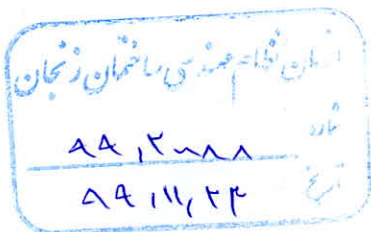 سازمان نظام مهندسی ساختمان زنجان
شماره
۸۸,۲۰۸۸
تاریخ
۸۹,۱۱,۲۴